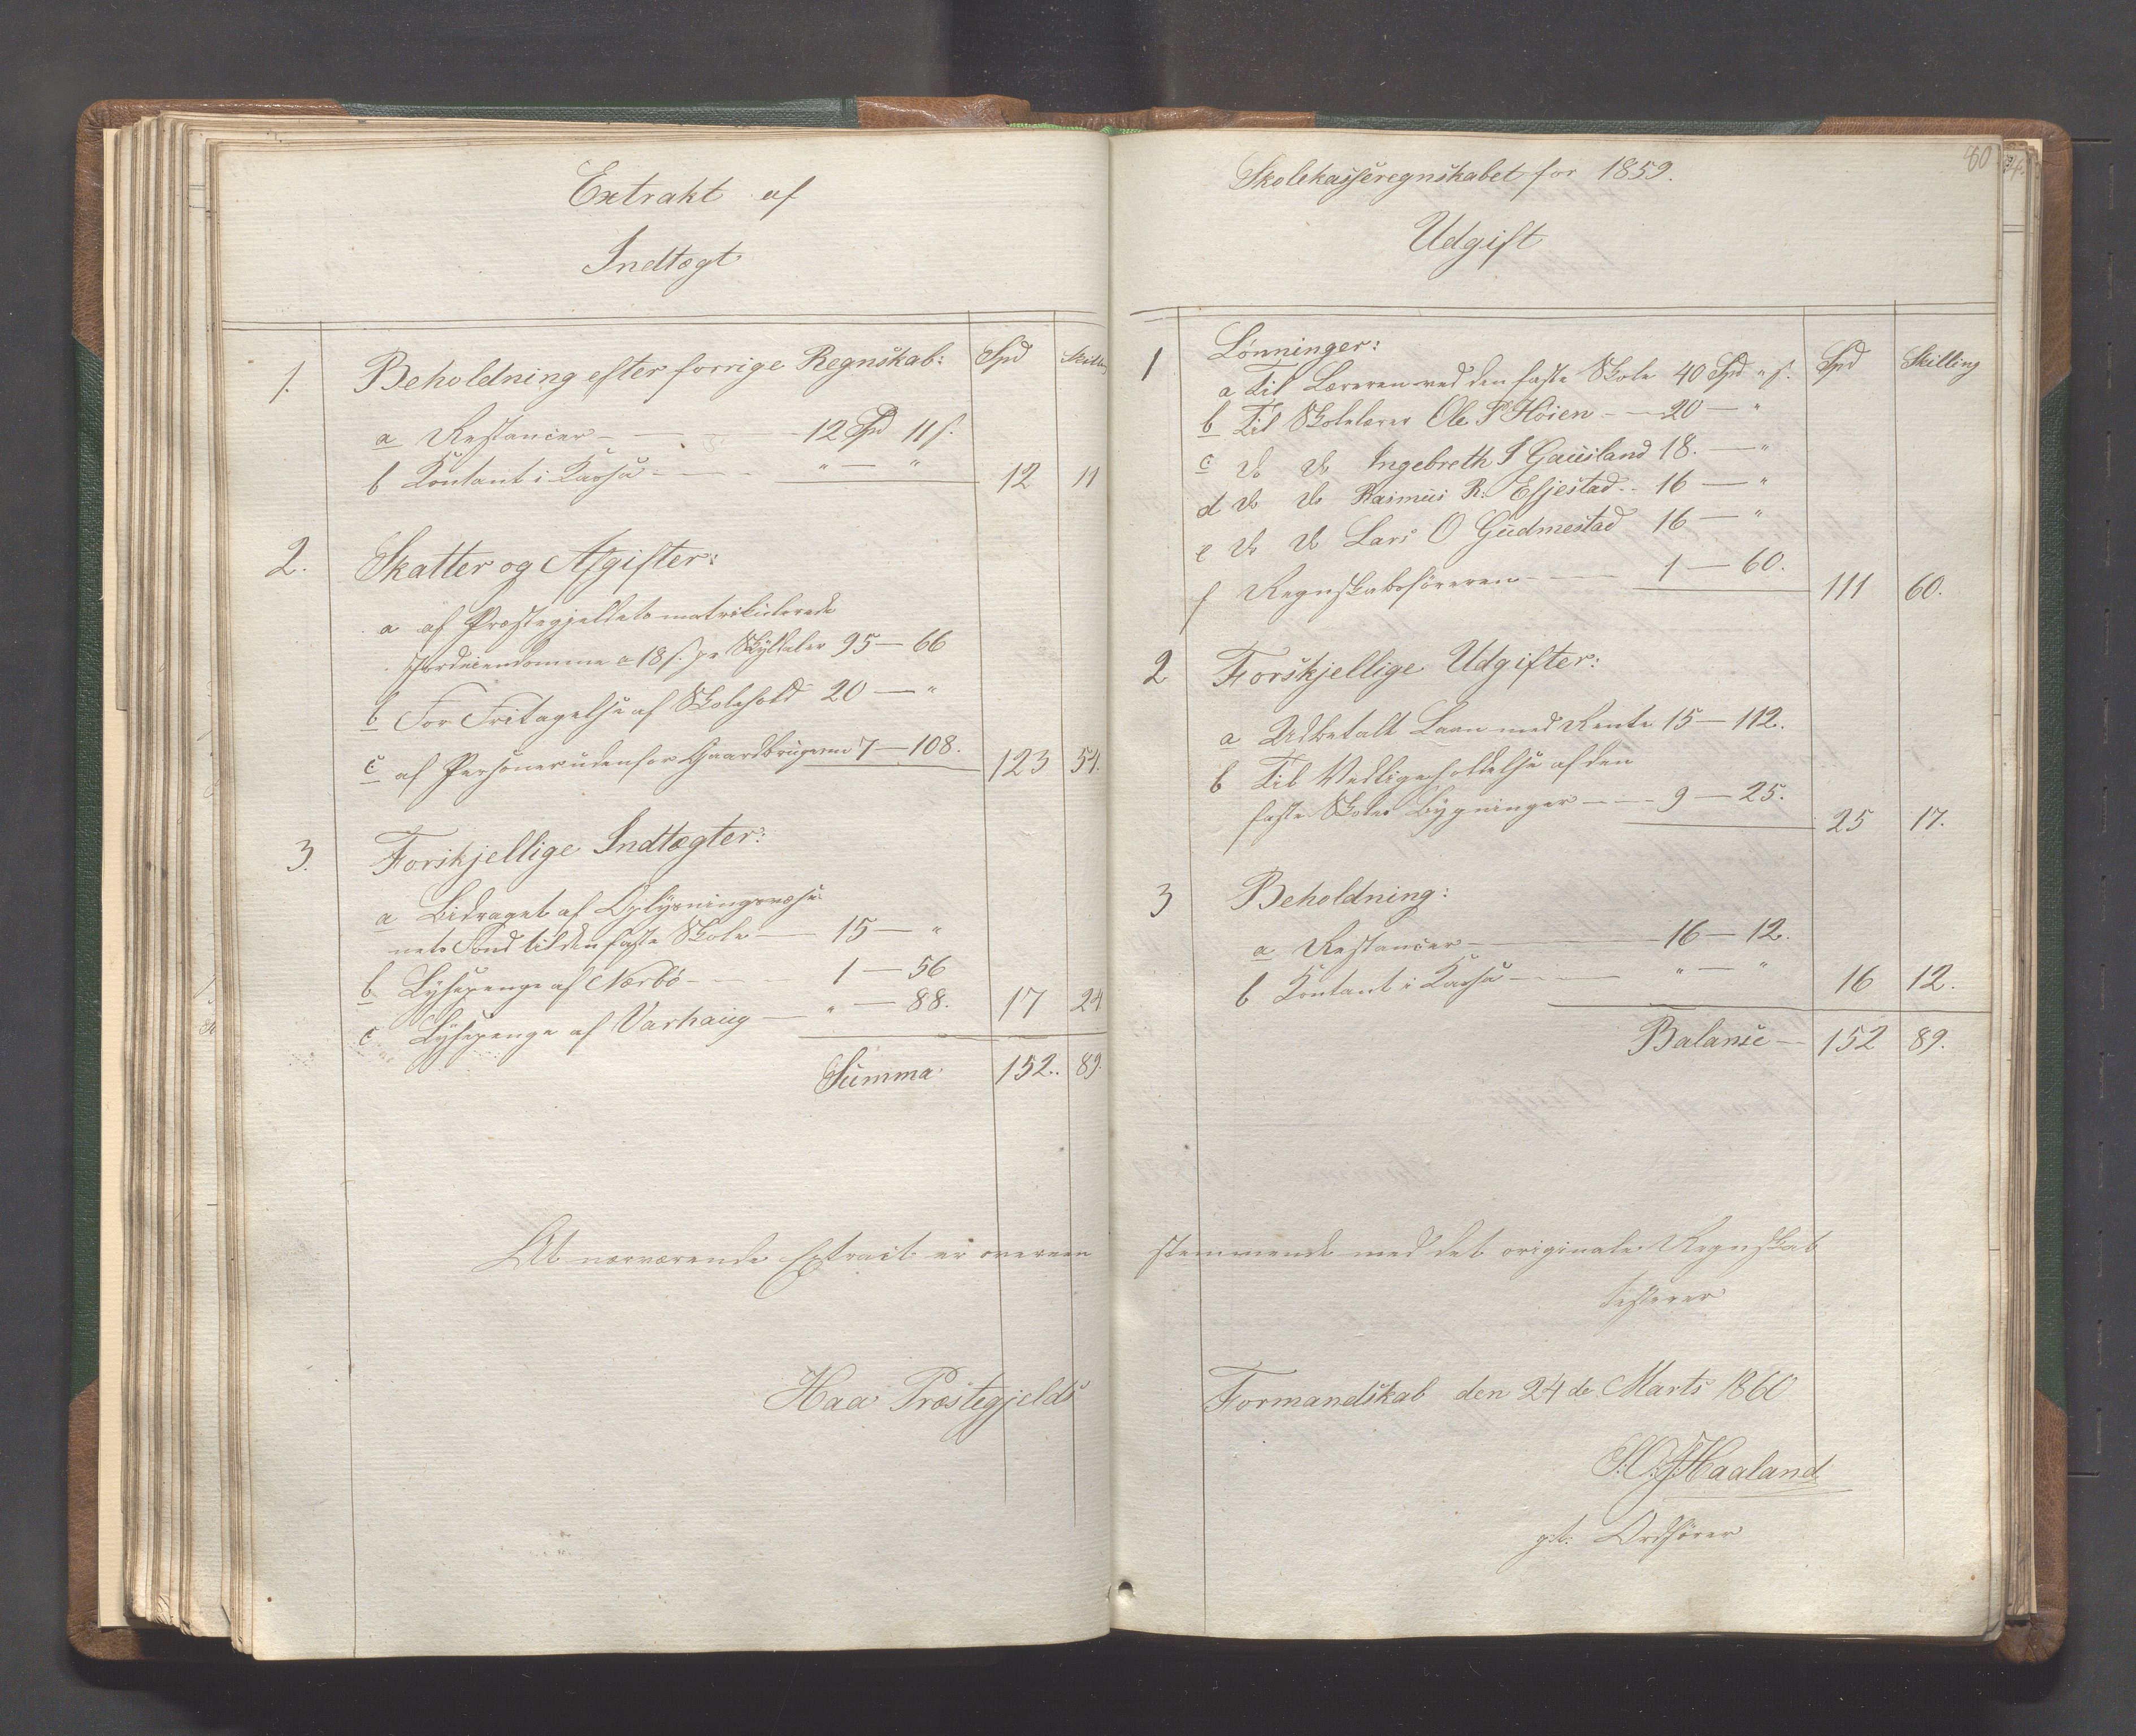 Extrakt af
Indtægt
1. Beholdning efter forrige Regnskab: Spd Skilling
a Restancer - 12 Spd 11 s.
b Kontant i Kassa - " — " 12 11
2. Skatter og Afgifter:
a af Præstegjeldets matrikulerede
Jordeiendomme a 18 s. pr Skylddaler 95 — 66
b For Fritagelse af Skolehold 20 — "
c af Personer udenfor Gaardbrugerne 7 — 108. 123 54.
3. Forskjellige Indtægter:
a Bidraget af Oplysningsvæse-
nets Fond til den faste Skole — 15 — "
b Lysepenge af Nærbø - 1 — 56
c Lysepenge af Varhaug — " — 88. 17 24
Summa 152.. 89.
At nærværende Extract er overeen
Haa Præstegjelds
60
Skolekasseregnskabet for 1859.
Udgift
1 Lønninger: Spd Skilling
a Til Læreren ved den faste Skole 40 Spd " s.
b Til Skolelærer Ole P Høien - 20 — "
c do do Ingebreth I Gausland 18. — "
d do do Rasmus R. Esjestad.. 16 — "
e do do Lars O Gudmestad 16 — "
f Regnskabsføreren - 1 — 60. 111 60.
2 Forskjellige Udgifter:
a Udbetalt Laan med Rente 15 — 112.
b Til Vedligeholdelse af den
faste Skoles Bygninger - 9 — 25. 25 17.
3 Beholdning:
a Restancer - 16 — 12.
b Kontant i Kassa - " — " 16 12.
Balance — 152 89.
stemmende med det originale Regnskab
testerer
Formandskab den 24de Marts 1860
Haaland
Ordfører